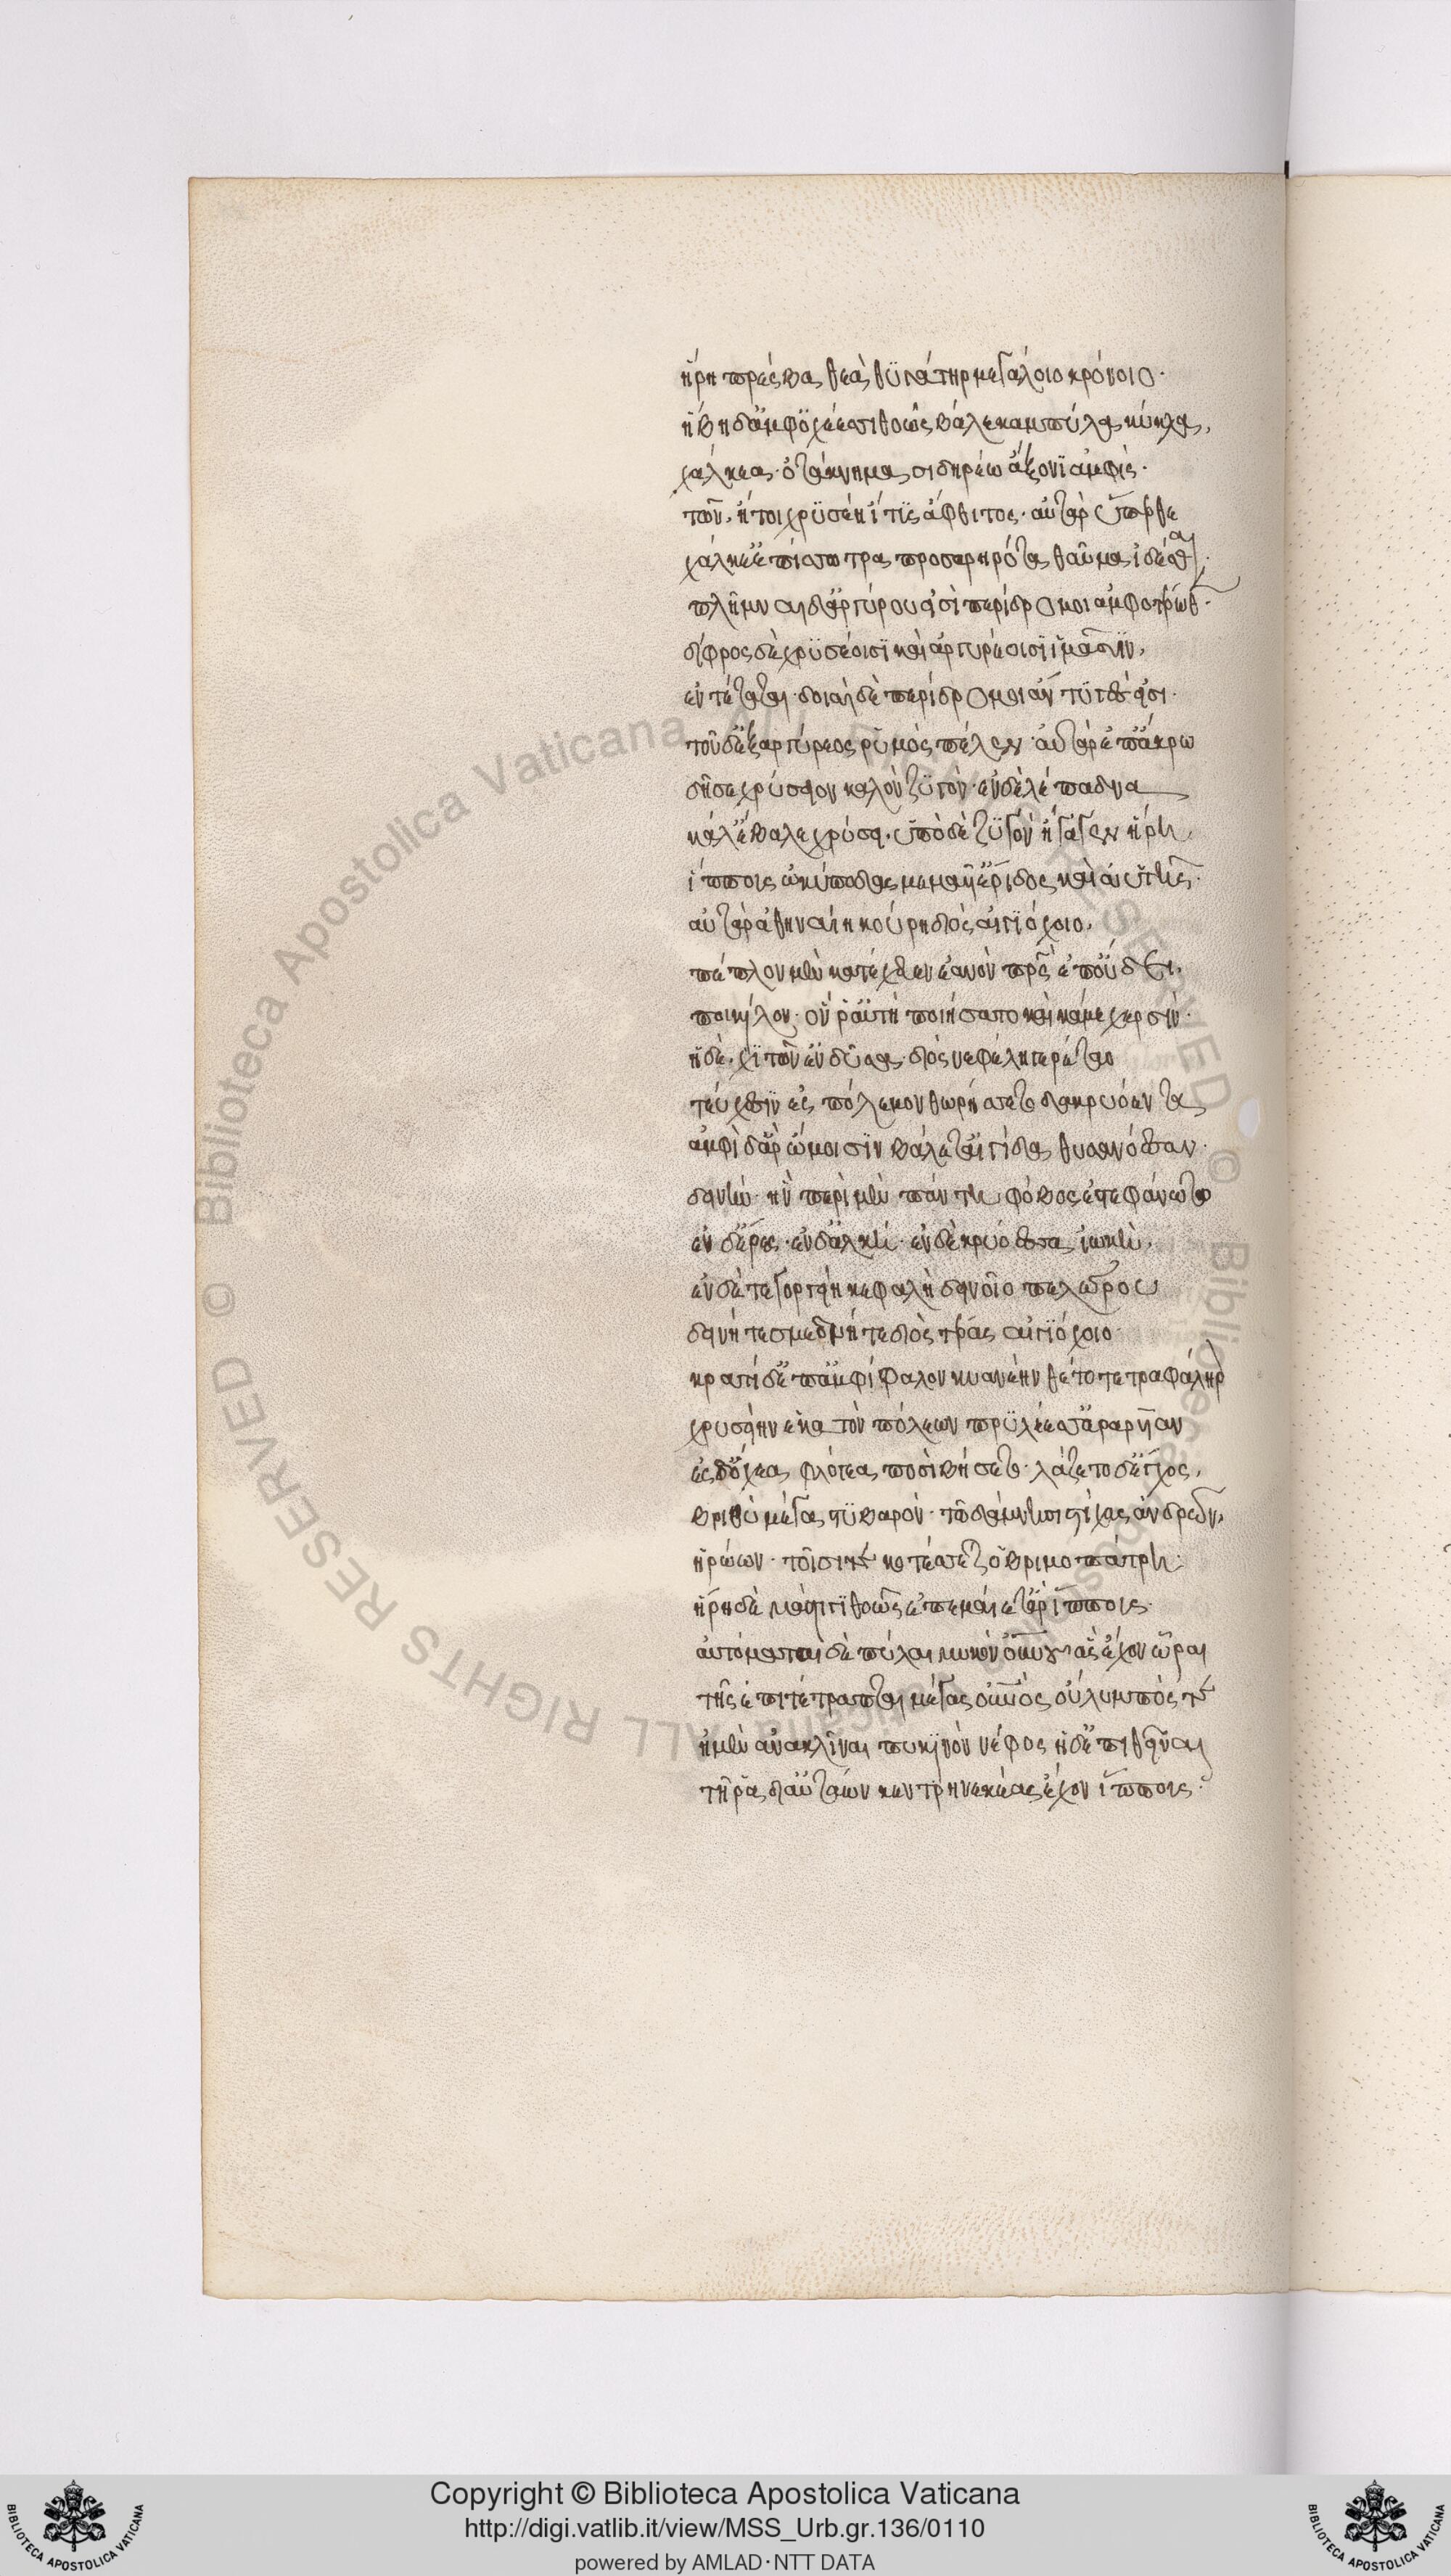 ἥρη πρέσβα θεὰ θϋγάτηρ μεγάλοιο κρόνοιο·
ἥβη δ᾽ἀμφ᾽ὀχέεσσι θοῶς βάλε καμπύλα κύκλα,
χάλκεα· ὀκτάκνημα σιδηρέω ἄξονϊ ἀμφίς·
τῶν, ἤτοι χρϋσέη ἴτϋς ἄφθιτος· αὐτὰρ ὕπερθε
χάλκε᾽ἐπίσσωτρα προσαρηρότα θαῦμα ἰδέσθαι·
πλῆμναι δ᾽ἀργύρου εἰσὶ περίδρομοι ἀμφοτέρωθεν·
δίφρος δὲ χρϋσέοισϊ καὶ ἀργυρέοισϊ ἱμᾶσιν,
ἐντέταται· δοιαὶ δὲ περίδρομοι ἄντϋγές εἰσι·
τοῦ δ᾽ἐξ ἀργύρεος ρῡμὸς πέλεν· αὐτὰρ ἐπ᾽ἄκρω
δῆσε χρύσειον καλὸν ζϋγὸν· ἐν δὲ λέπαδνα
κάλ᾽ἔβαλε χρύσει· ὑπὸ δὲ ζϋγὸν ἤγαγεν ἥρη
ἵππους ὠκύποδας μεμαυῖ᾽ἔριδος καὶ ἀϋτῆς·
αὐτὰρ ἀθηναίη κούρη διὸς αἰγϊόχοιο,
πέπλον μὲν κατέχευεν ἑανὸν πατρὸς ἐπ᾽οὔδει,
ποικίλον· ὅν ῥ᾽αὐτὴ ποιήσατο καὶ κάμε χερσὶν·
ἡ δὲ, χϊτῶν᾽ἐνδῦσα διὸς νεφεληγερέταο
τεύχεσϊν ἐς πόλεμον θωρήσσετο δακρυόεντα
ἀμφὶ δ᾽ἄρ᾽ὤμοισϊν βάλετ᾽αἰγίδα θυσανόεσσαν·
δεινὴν· ἣν περὶ μὲν πάντη φόβος ἐστεφάνωτο
ἐν δ᾽ἔρις· ἐν δ᾽ἀλκὴ· ἐν δὲ κρυόεσσα ἰωκὴ,
ἐν δέ τε γοργείη κεφαλὴ δεινοῖο πελώρου
δεινή τε σμερδνή τε διὸς τέρας αἰγϊόχοιο·
κρατὶ δ᾽ἐπ᾽ἀμφίφαλον κυανέην θέτο τετραφάληρον
χρυσείην ἑκατὸν πόλεων πρϋλέεσσ᾽ἀραρυῖαν
ἐς δ᾽ὄχεα φλόγεα ποσὶ βήσετο· λάζετο δ᾽ἔγχος,
βριθὺ μέγα στϋβαρὸν· τῶ δάμνησι στίχας ἀνδρῶν,
ἡρώων· τοῖσί τε κοτέσσετ᾽ὀβριμοπάτρη·
ἥρη δὲ μάστιγϊ θοῶς ἐπεμαίετ᾽ἄρ᾽ἵππους·
αὐτόμαται δὲ πύλαι μύκον οὐρανοῦ ἃς ἔχον ὧραι
τῆς ἐπιτέτραπται μέγας οὐρανὸς οὔλυμπός τε
ἠμὲν ἀνακλῖναι πυκϊνὸν νέφος ἠδ᾽ἐπιθεῖναι
τῆ ῥα δι᾽αὐτάων κεντρηνεκέας ἔχον ἵππους·
Copyright © Biblioteca Apostolica Vaticana
http://digi.vatlib.it/view/MSS_Urb.gr.136/0110
powered by AMLAD·NTT DATA